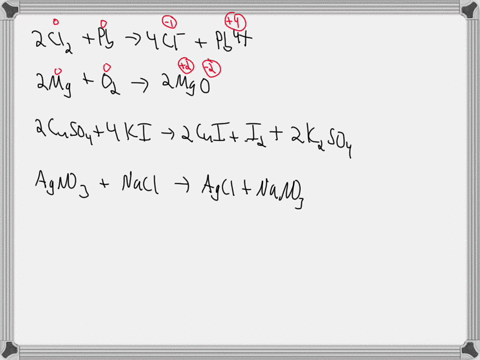 0 0 -1 +4
2Cl₂ + Pb → 4Cl⁻ + Pb⁴⁺
0 0 +2 -2
2Mg + O₂ → 2MgO
2CuSO₄ + 4KI → 2CuI + I₂ + 2K₂SO₄
AgNO₃ + NaCl → AgCl + NaNO₃